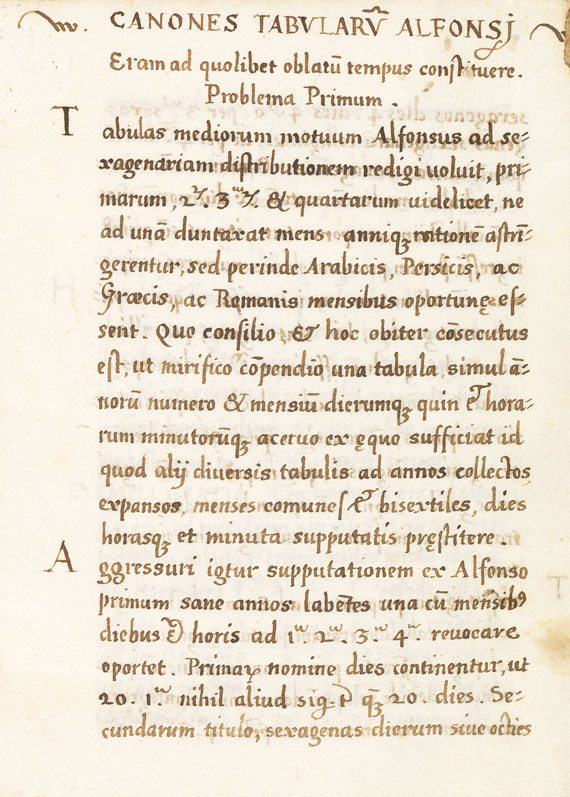 CANONES TABVLARṼ ALFONSI
Eram ad quolibet oblatũ tempus constituere.
Problema Primum.
Tabulas mediorum motuum Alfonsus ad se-
xagenariam distributionem redigi voluit, pri-
marum, 2. 3. & quartarum uidelicet, ne
ad unã duntaxat mens anniqꝫ rationẽ astrĩ-
gerentur, sed perinde Arabicis, Persicis, ac
Græcis, ac Romanis mensibus oportunę es-
sent. Quo consilio & hoc obiter cõsecutus
est, ut mirifico cõpendio una tabula simul ã-
norũ numero & mensiũ dierumqꝫ quin & hora-
rum minutorũqꝫ aceruo ex ęquo sufficiat id
quod alij diversis tabulis ad annos collectos
expansos, menses comunes & bisextiles, dies
horasqꝫ et minuta supputatis pręstitere.
Aggressuri igtur supputationem ex Alfonso
primum sane annos labẽtes una cũ mensibꝰ
diebus & horis ad 1ᵃ. 2ᵃ. 3ᵃ. 4ᵃ. revocare
oportet. Primaꝝ nomine dies continentur, ut
20. 1ᵃ nihil aliud sig. qꝫ̃ 20. dies. Se-
cundarum titulo, sexagenas dierum siue octies